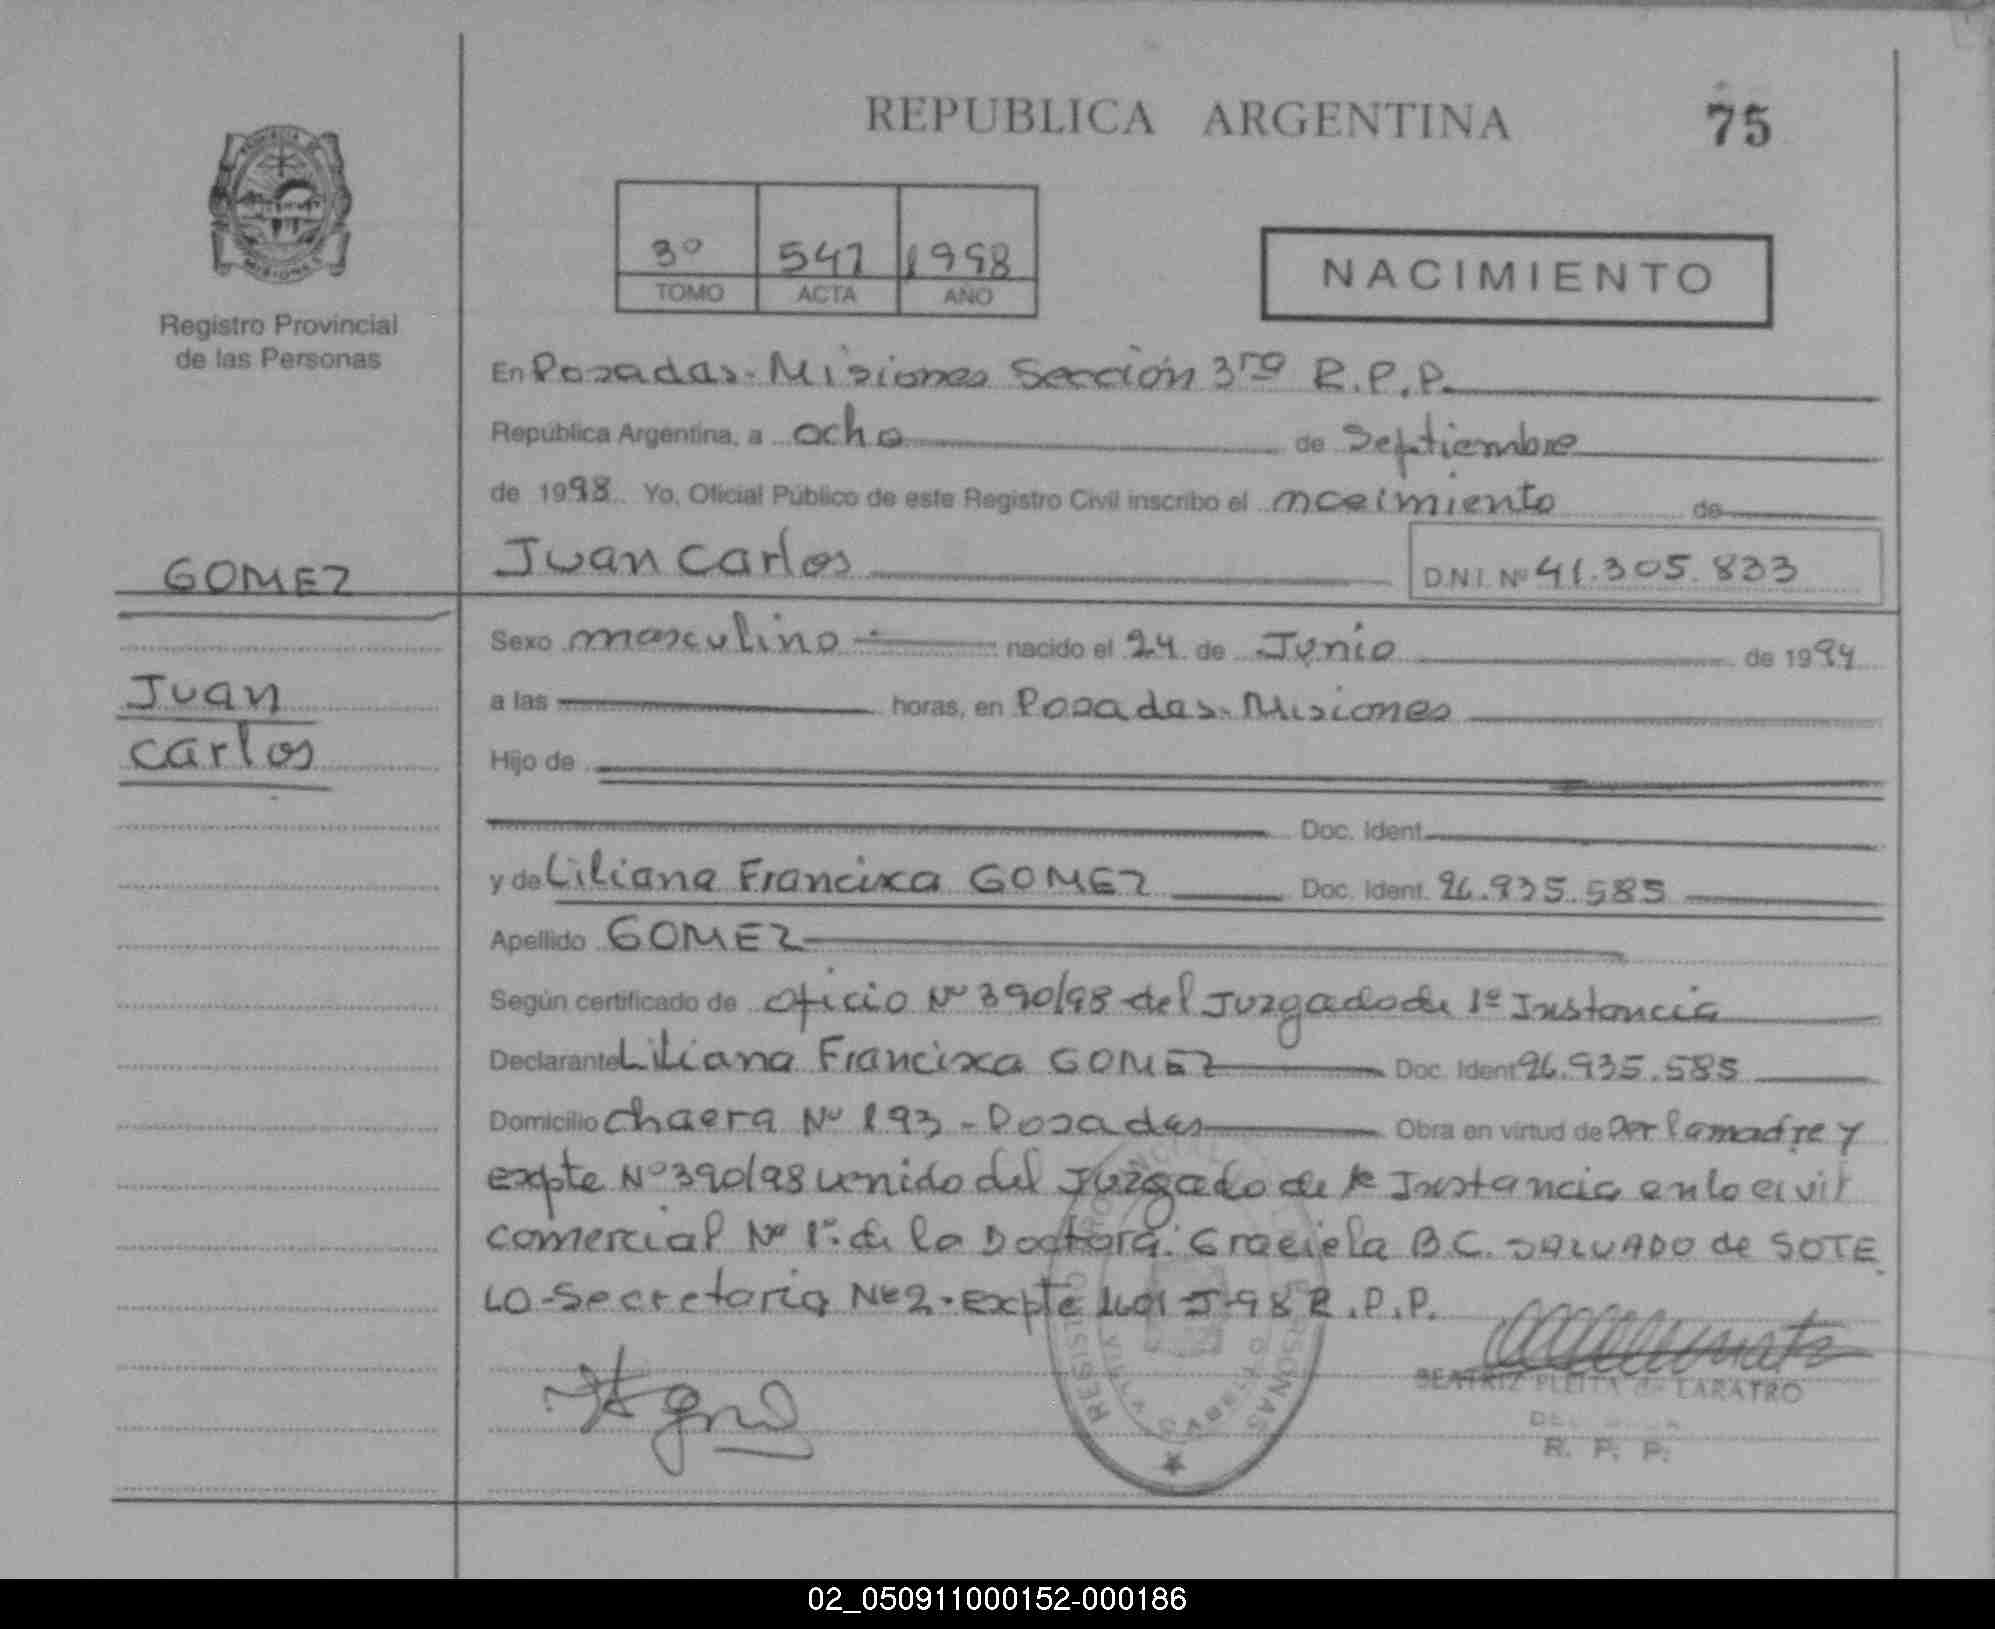 REPUBLICA ARGENTINA
75
PROVINCIA
MISIONES
Registro Provincial
de las Personas
3º 541 1998
TOMO ACTA AÑO
NACIMIENTO
En Posadas - Misiones Sección 3ra R.P.P.
República Argentina, a ocho de Septiembre
de 1998 Yo, Oficial Público de este Registro Civil inscribo el nacimiento de
GOMEZ
Juan Carlos
D.N.I. Nº 41.305.833
Sexo masculino nacido el 24 de Junio de 1994
Juan
Carlos
a las horas, en Posadas - Misiones
Hijo de
Doc. Ident.
y de Liliana Francisca GOMEZ Doc. Ident. 26.935.585
Apellido GOMEZ
Según certificado de oficio Nº 390/98 del Juzgado de 1º Instancia
Declarante Liliana Francisca GOMEZ Doc. Ident 26.935.585
Domicilio chacra Nº 193 - Posadas Obra en virtud de Por la madre y
expte Nº 390/98 venido del Juzgado de 1º Instancia en lo civil
comercial Nº 1º de la Doctora Graciela B.C. SALVADO de SOTE
LO - Secretaria Nº 2 - expte 1601-J-98 R.P.P.
BEATRIZ de LARATRO
R. P. P.
02_050911000152-000186